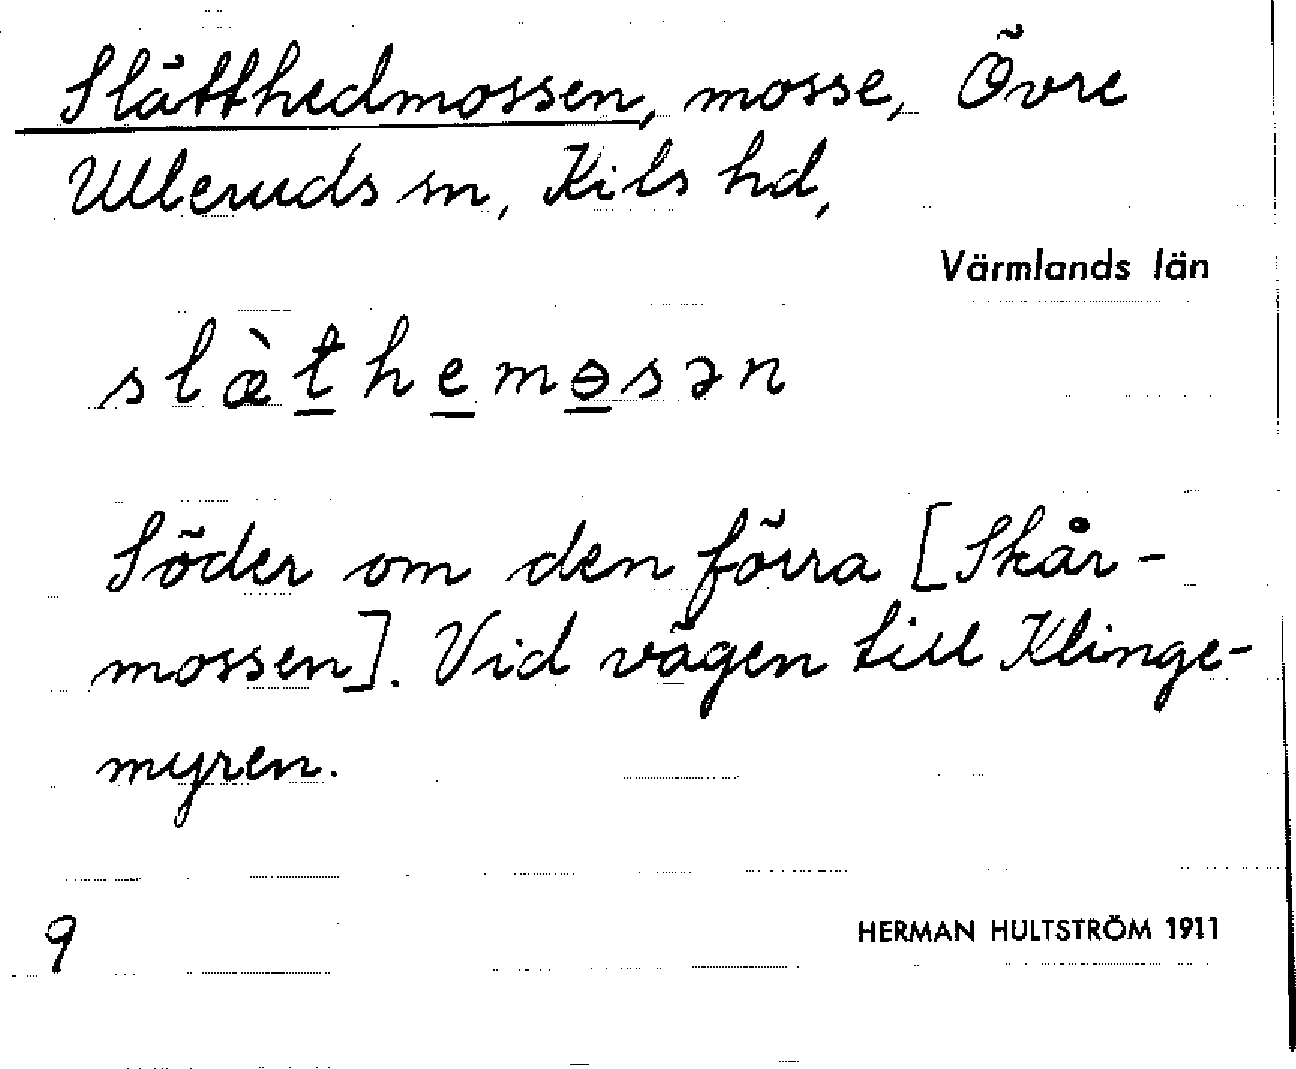 Slätthedmossen, mosse, Övre
Ulleruds sn, Kils hd,
Värmlands län
slæ̀t̲he̲mɵ̲sən
Söder om den förra [Skår-
mossen]. Vid vägen till Klinge-
myren.
9
HERMAN HULTSTRÖM 1911